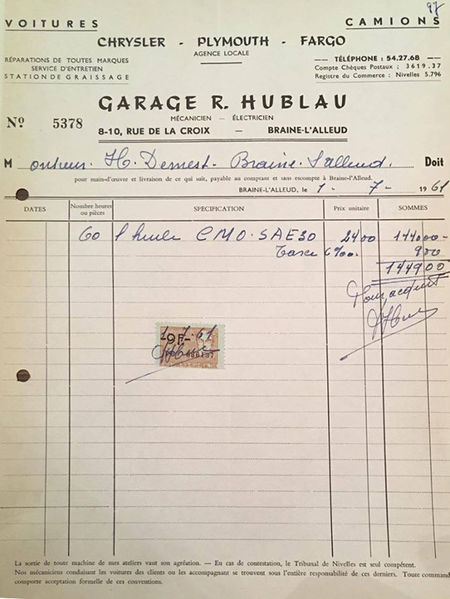 97
VOITURES CAMIONS
CHRYSLER - PLYMOUTH - FARGO
AGENCE LOCALE
RÉPARATIONS DE TOUTES MARQUES
SERVICE D'ENTRETIEN
STATION DE GRAISSAGE
TÉLÉPHONE : 54.27.68
Compte Chèques Postaux : 3619.37
Registre du Commerce : Nivelles 5.796
GARAGE R. HUBLAU
MÉCANICIEN — ÉLECTRICIEN
Nº 5378
8-10, RUE DE LA CROIX — BRAINE-L'ALLEUD
Monsieur H. Braine-l'alleud. Doit
pour main-d'œuvre et livraison de ce qui suit, payable au comptant et sans escompte à Braine-l'Alleud.
BRAINE-L'ALLEUD, le 1 - 7 - 1961
DATES Nombre heures ou pièces SPÉCIFICATION Prix unitaire SOMMES
60 l huile CMO-SAE30 2400 144000-
Taxe 6%00. 900
144900
Pour acquit
1.7.61
-9F-
La sortie de toute machine de mes ateliers vaut son agréation. — En cas de contestation, le Tribunal de Nivelles est seul compétent.
Nos mécaniciens conduisant les voitures des clients ou les accompagnant se trouvent sous l'entière responsabilité de ces derniers. Toute command
comporte acceptation formelle de ces conventions.